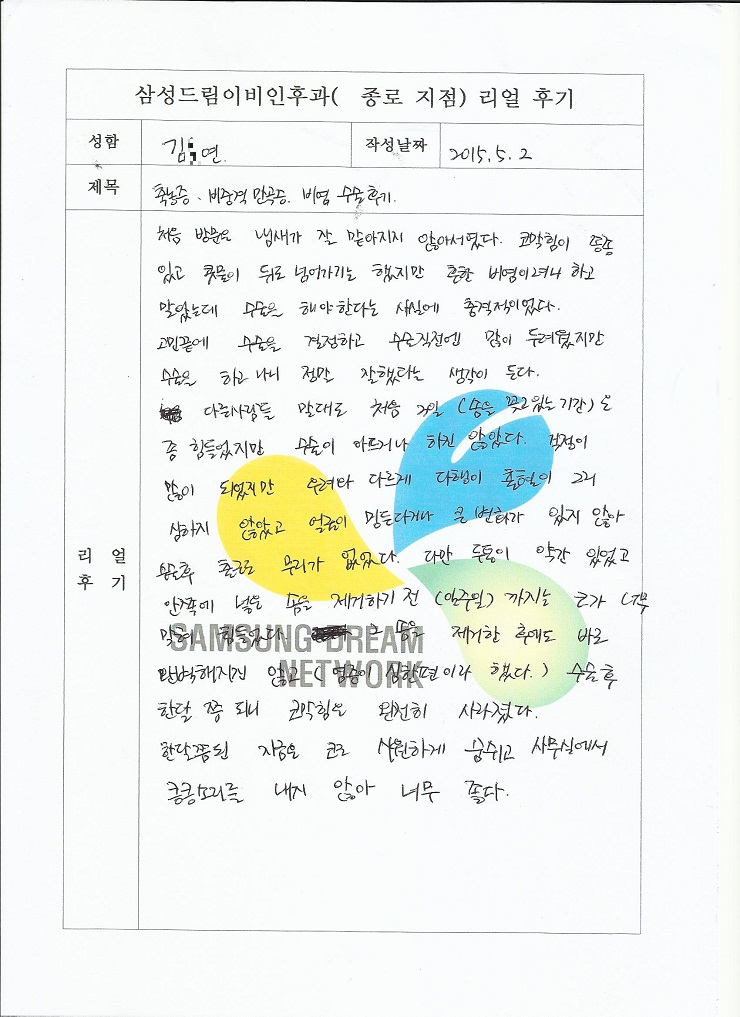 삼성드림이비인후과( 종로 지점) 리얼 후기
성함 김 연. 작성날짜 2015. 5. 2
제목 축농증, 비중격 만곡증, 비염 수술후기.
처음 방문은 냄새가 잘 맡아지지 않아서였다. 코막힘이 종종
있고 콧물이 뒤로 넘어가기는 했지만 흔한 비염이려니 하고
말았는데 수술을 해야한다는 사실에 충격적이었다.
고민끝에 수술을 결정하고 수술직전엔 많이 두려웠지만
수술을 하고 나니 정말 잘했다는 생각이 든다.
다른사람들 말대로 처음 2일 (솜을 꽂고있는기간)은
좀 힘들었지만 수술이 아프거나 하진 않았다. 걱정이
많이 되었지만 우려와 다르게 다행이 출혈이 그리
심하지 않았고 얼굴이 멍든다거나 큰 변화가 있지 않아
수술후 출근도 무리가 없었다. 다만 두통이 약간 있었고
안쪽에 넣은 솜을 제거하기 전 (일주일) 까지는 코가 너무
막혀 힘들었다. 그 솜을 제거한 후에도 바로
완벽해지진 않고 (염증이 심한편이라 했다.) 수술 후
한달 쯤 되니 코막힘은 완전히 사라졌다.
한달쯤된 지금은 코로 시원하게 숨쉬고 사무실에서
킁킁소리를 내지 않아 너무 좋다.
리 얼
후 기
SAMSUNG DREAM
NETWORK